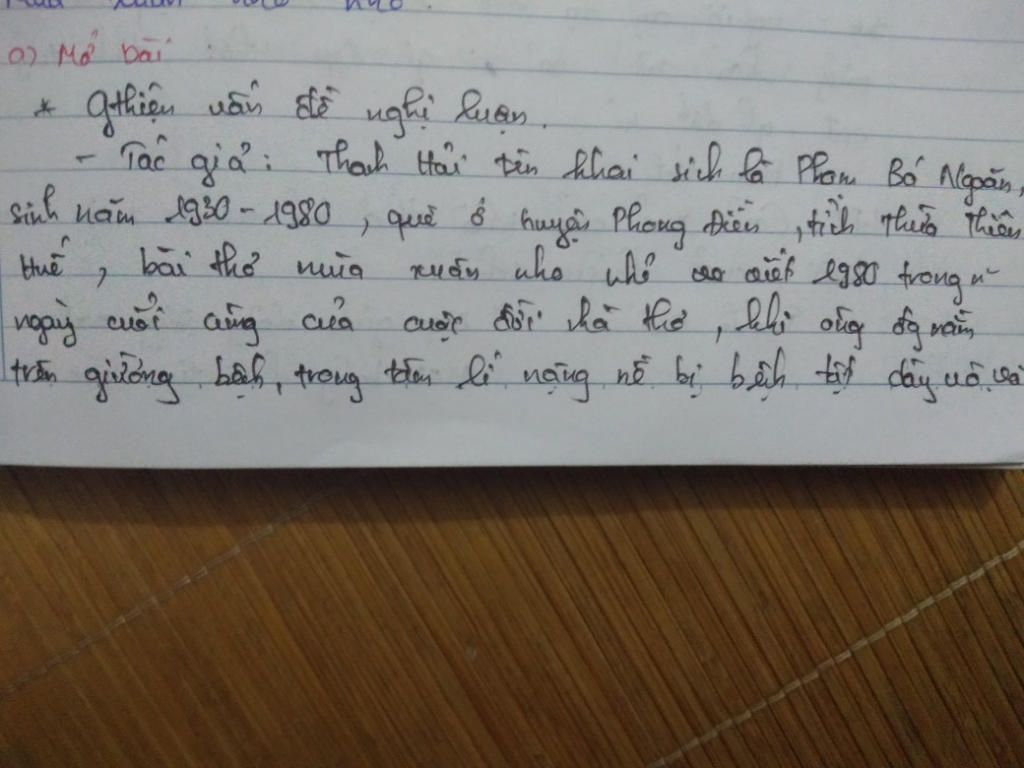 a) Mở bài :
* Gthiệu vấn đề nghị luận.
- Tác giả : Thanh Hải tên khai sinh là Phạm Bá Ngoãn,
sinh năm 1930 - 1980 , quê ở huyện Phong Điền , tỉnh Thừa Thiên
Huế , bài thơ mùa xuân nho nhỏ viết 1980 trong n~
ngày cuối cùng của cuộc đời nhà thơ , khi ông đg nằm
trên giường bệnh, trong tâm lí nặng nề bị bệnh tật dày vò và